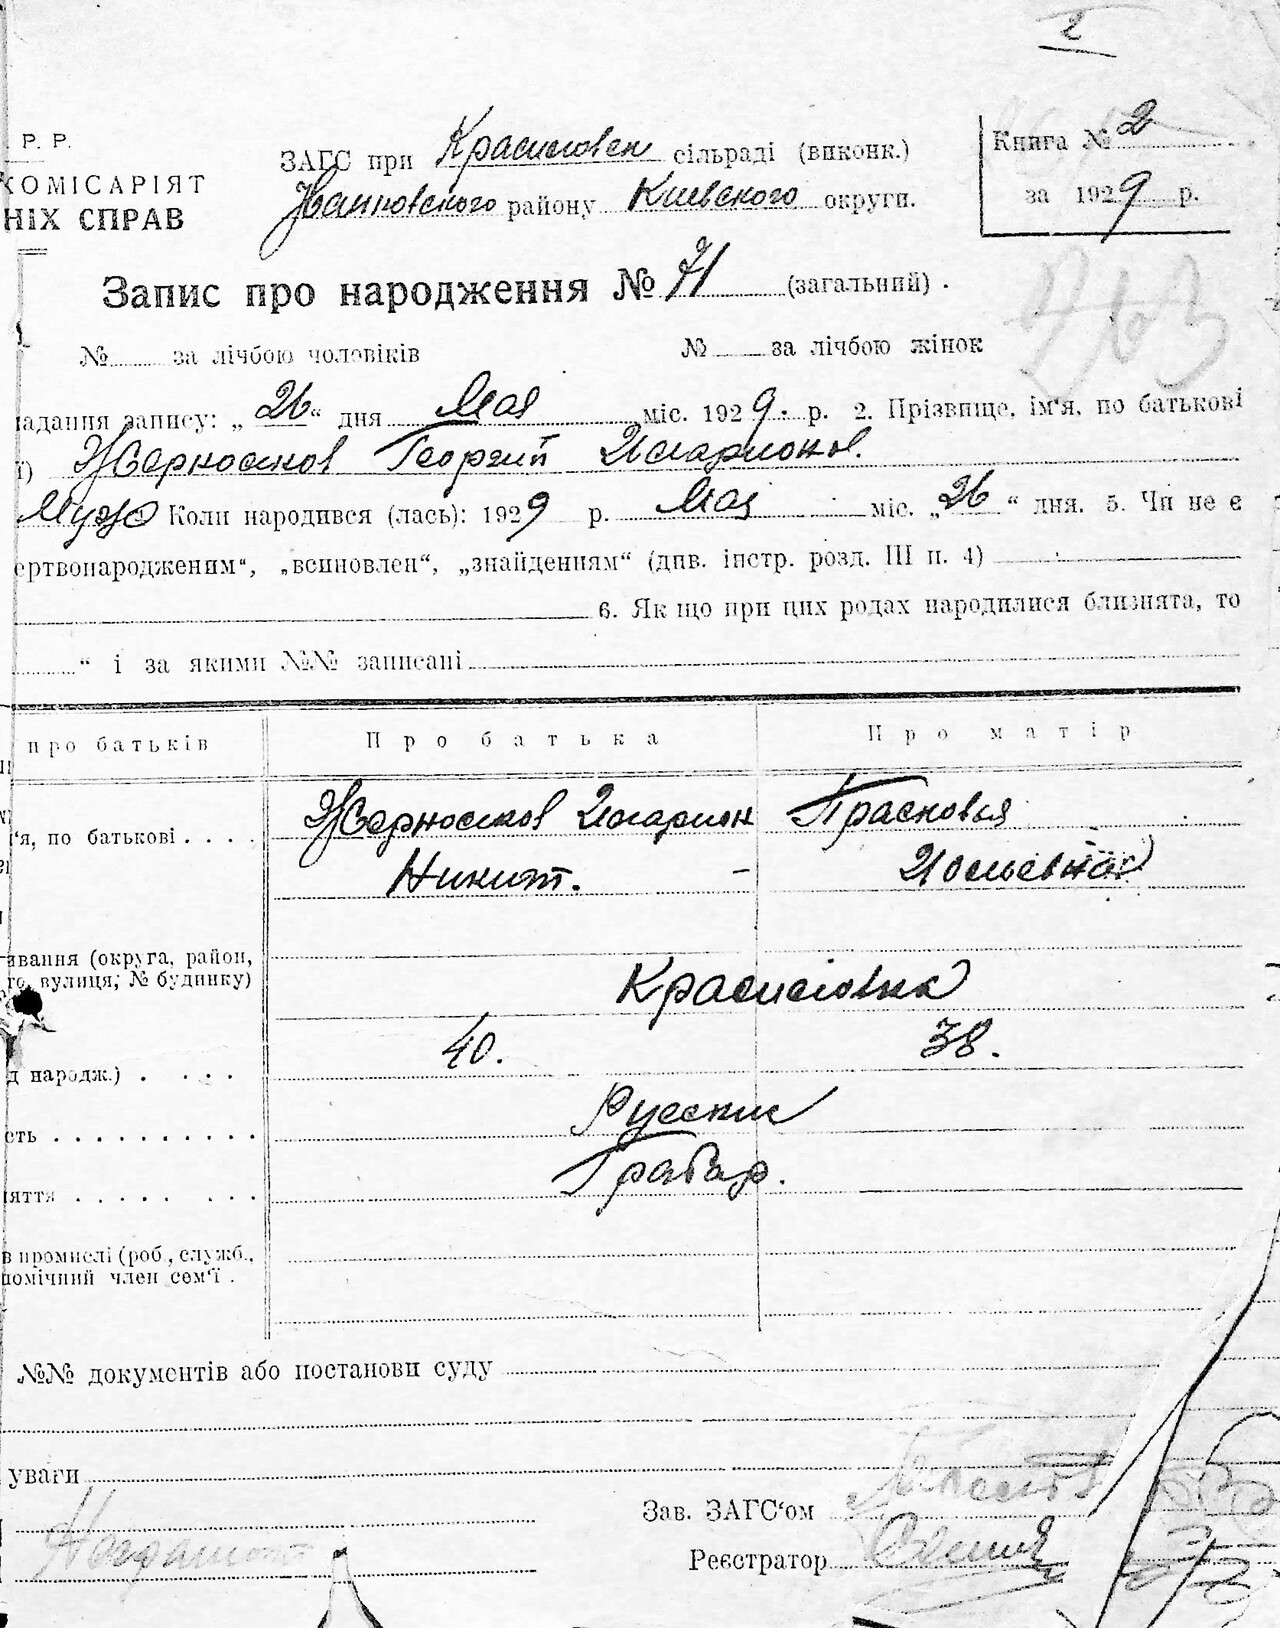 2
Р. Р.
КОМІСАРІЯТ
НІХ СПРАВ
ЗАГС при Красиловск сільраді (виконк.)
Ивановского району Киевского округи.
Книга № 2
за 1929 р.
Запис про народження № 71 (загальний).
963
№ за лічбою чоловіків № за лічбою жінок
надання запису: „26“ дня Мая міс. 1929. р. 2. Прізвище, ім'я, по батькові
ї) Жерноклов Георгий Иларионов.
Мужс Коли народився (лась): 1929 р. Мая міс. „26“ дня. 5. Чи не є
ертвонародженим“, „всиновлен“, „знайденням“ (див. інстр. розд. III п. 4)
6. Як що при цих родах народилися близнята, то
“ і за якими №№ записані
про батьків Про батька Про матір
'я, по батькові . . . . Жерноклов Иларион Прасковья
Никит. - Иосиевна
ивання (округа, район,
го, вулиця, № будинку) Красиловка
д народж.) . . . . 40. 38.
сть . . . . . . . . . . Русские
няття . . . . . . . . Грабар.
в промислі (роб., служб.,
помічний член сем'ї .
№№ документів або постанови суду
уваги
Зав. ЗАГС'ом
Реєстратор